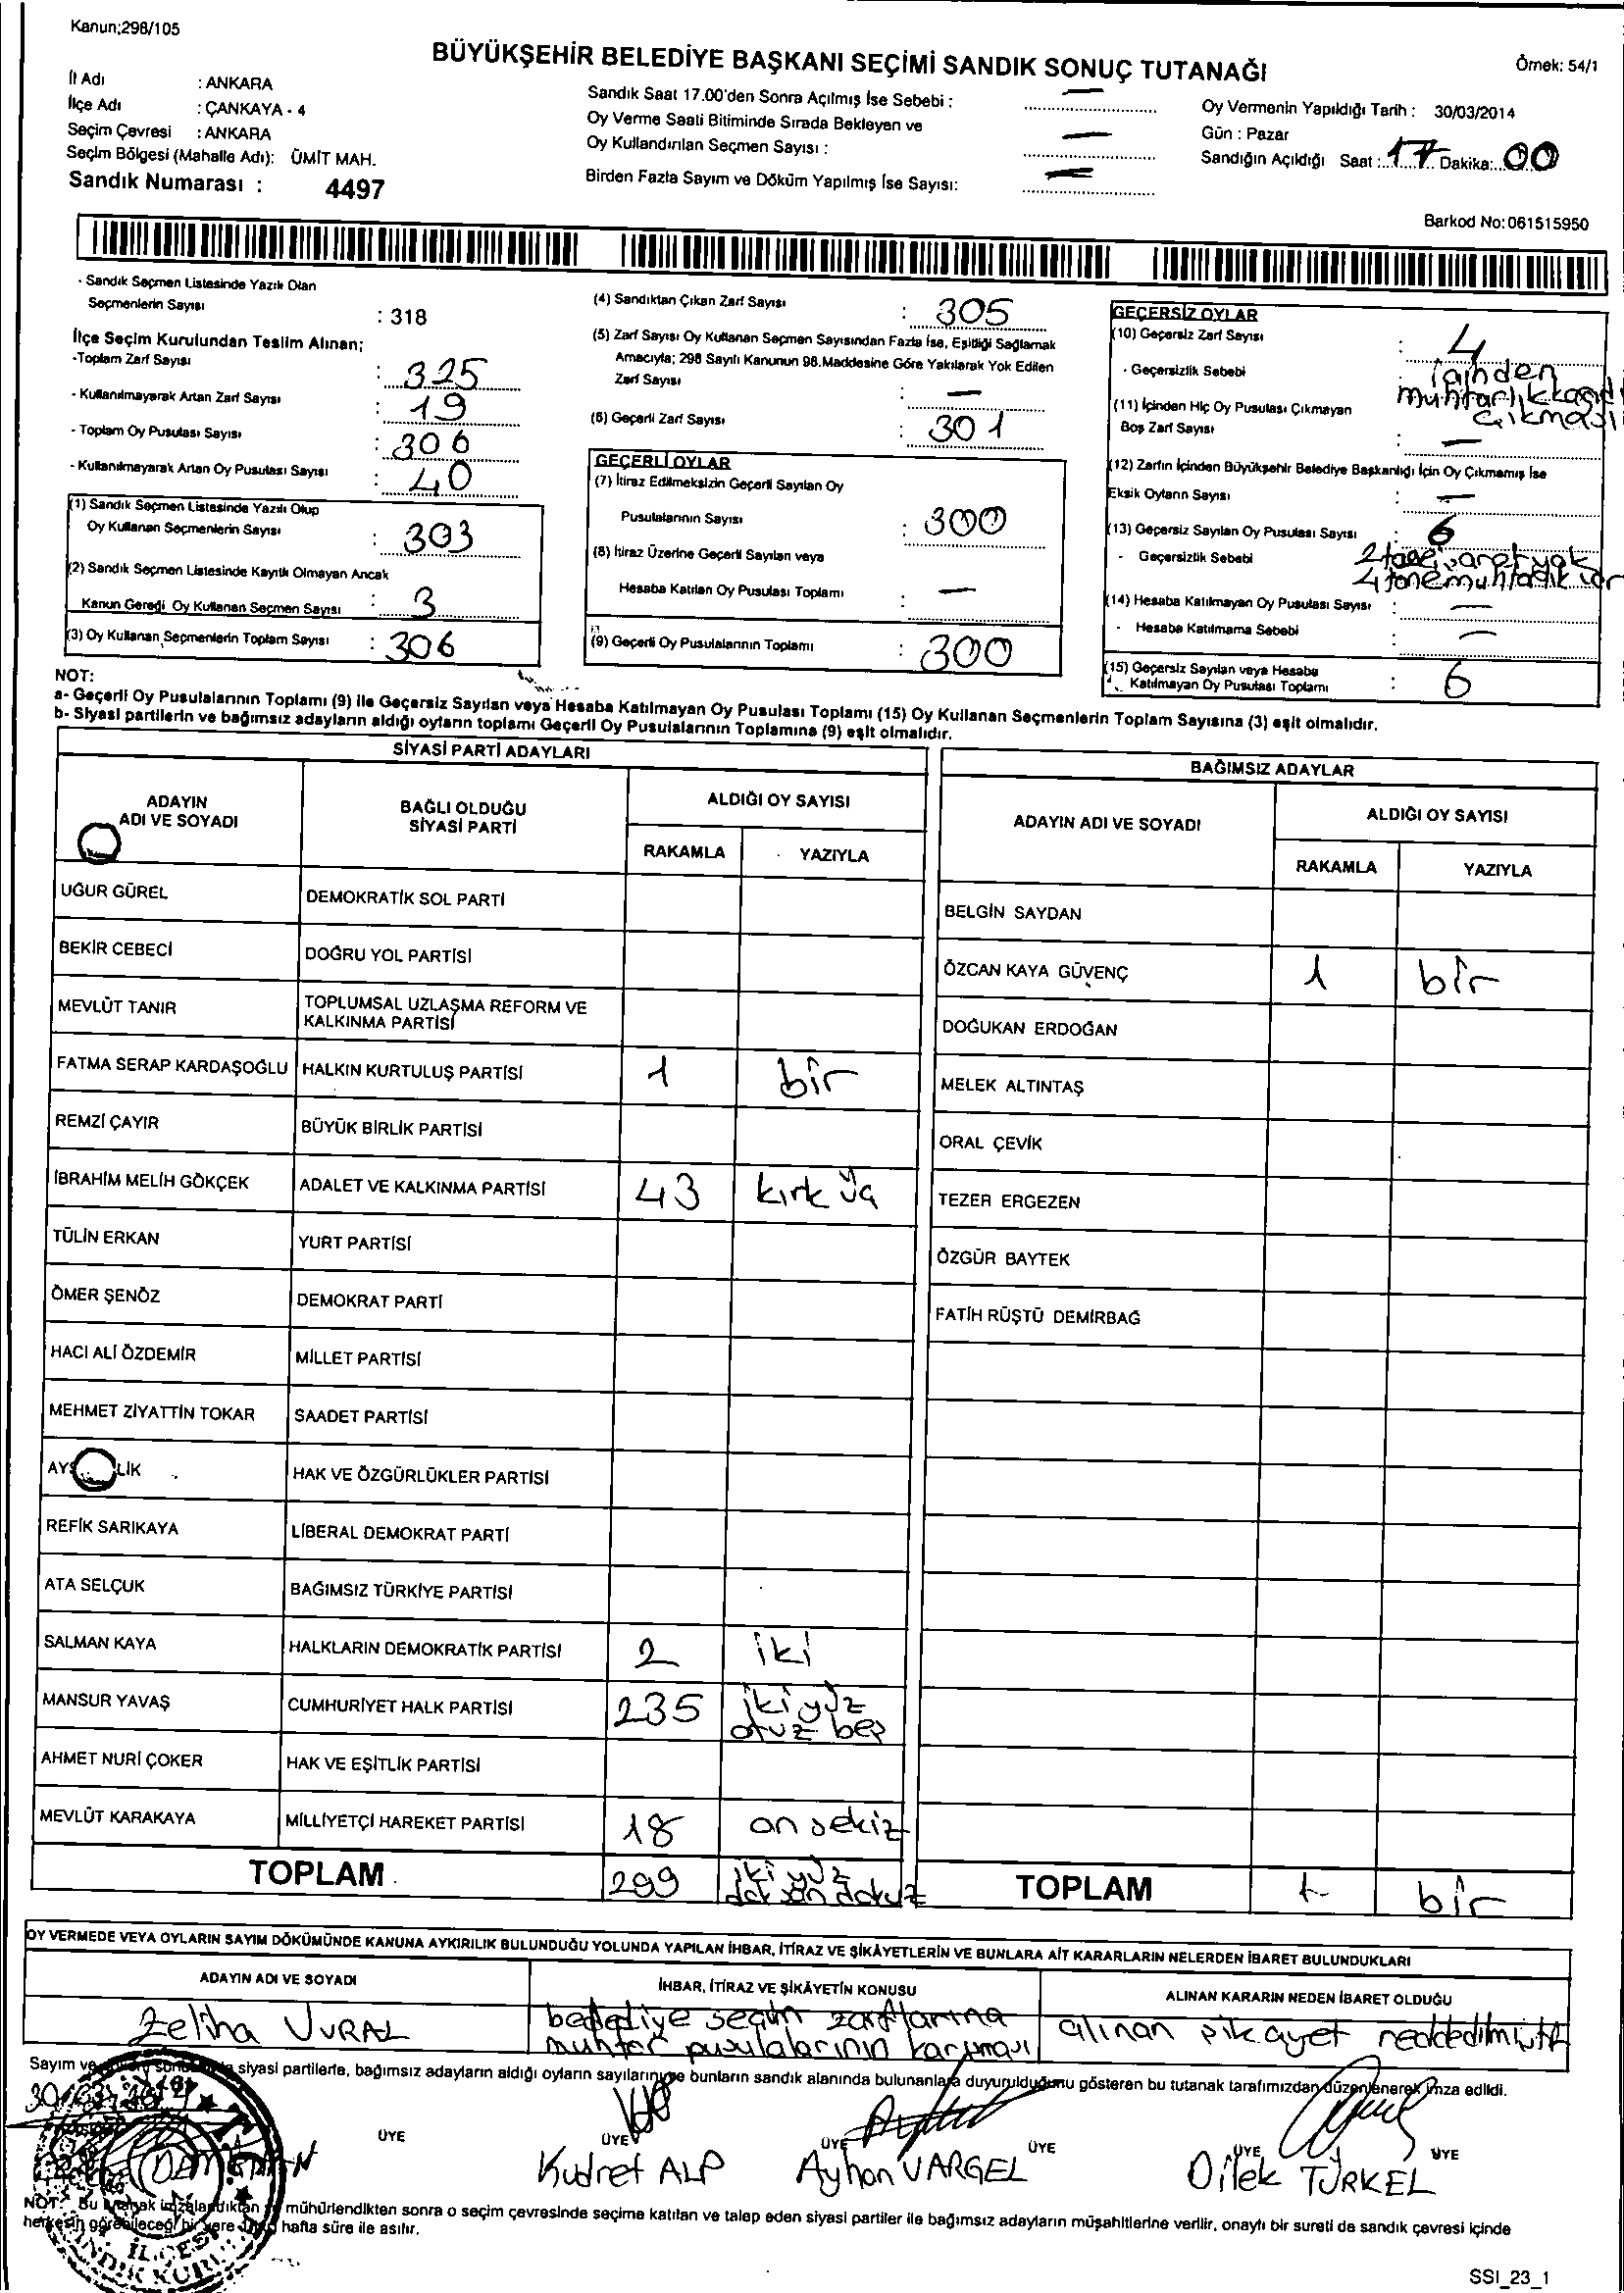 Kanun;298/105
BÜYÜKŞEHİR BELEDİYE BAŞKANI SEÇİMİ SANDIK SONUÇ TUTANAĞI
Örnek: 54/1
İl Adı : ANKARA
İlçe Adı : ÇANKAYA - 4
Seçim Çevresi : ANKARA
Seçim Bölgesi (Mahalle Adı): ÜMİT MAH.
Sandık Numarası : 4497
Sandık Saat 17.00'den Sonra Açılmış İse Sebebi : —
Oy Verme Saati Bitiminde Sırada Bekleyen ve
Oy Kullandırılan Seçmen Sayısı : —
Birden Fazla Sayım ve Döküm Yapılmış İse Sayısı: —
Oy Vermenin Yapıldığı Tarih : 30/03/2014
Gün : Pazar
Sandığın Açıldığı Saat : 17 Dakika: 00
Barkod No:061515950
- Sandık Seçmen Listesinde Yazılı Olan
Seçmenlerin Sayısı : 318
İlçe Seçim Kurulundan Teslim Alınan;
-Toplam Zarf Sayısı : 325
- Kullanılmayarak Artan Zarf Sayısı : 19
- Toplam Oy Pusulası Sayısı : 306
- Kullanılmayarak Artan Oy Pusulası Sayısı : 40
(1) Sandık Seçmen Listesinde Yazılı Olup
Oy Kullanan Seçmenlerin Sayısı : 303
(2) Sandık Seçmen Listesinde Kayıtlı Olmayan Ancak
Kanun Gereği Oy Kullanan Seçmen Sayısı : 3
(3) Oy Kullanan Seçmenlerin Toplam Sayısı : 306
(4) Sandıktan Çıkan Zarf Sayısı : 305
(5) Zarf Sayısı Oy Kullanan Seçmen Sayısından Fazla İse, Eşitliği Sağlamak
Amacıyla; 298 Sayılı Kanunun 98.Maddesine Göre Yakılarak Yok Edilen
Zarf Sayısı : —
(6) Geçerli Zarf Sayısı : 301
GEÇERLİ OYLAR
(7) İtiraz Edilmeksizin Geçerli Sayılan Oy
Pusulalarının Sayısı : 300
(8) İtiraz Üzerine Geçerli Sayılan veya
Hesaba Katılan Oy Pusulası Toplamı : —
(9) Geçerli Oy Pusulalarının Toplamı : 300
GEÇERSİZ OYLAR
(10) Geçersiz Zarf Sayısı : 4
- Geçersizlik Sebebi : içinden
muhtarlık
çıkması
(11) İçinden Hiç Oy Pusulası Çıkmayan
Boş Zarf Sayısı : —
(12) Zarfın İçinden Büyükşehir Belediye Başkanlığı İçin Oy Çıkmamış İse
Eksik Oyların Sayısı : —
(13) Geçersiz Sayılan Oy Pusulası Sayısı : 6
- Geçersizlik Sebebi 2 tane işaret yok
4 tane muhtarlık var
(14) Hesaba Katılmayan Oy Pusulası Sayısı : —
- Hesaba Katılmama Sebebi : —
(15) Geçersiz Sayılan veya Hesaba
Katılmayan Oy Pusulası Toplamı : 6
NOT:
a- Geçerli Oy Pusulalarının Toplamı (9) ile Geçersiz Sayılan veya Hesaba Katılmayan Oy Pusulası Toplamı (15) Oy Kullanan Seçmenlerin Toplam Sayısına (3) eşit olmalıdır.
b- Siyasi partilerin ve bağımsız adayların aldığı oyların toplamı Geçerli Oy Pusulalarının Toplamına (9) eşit olmalıdır.
SİYASİ PARTİ ADAYLARI
ADAYIN ADI VE SOYADI
BAĞLI OLDUĞU SİYASİ PARTİ
ALDIĞI OY SAYISI
RAKAMLA YAZIYLA
UĞUR GÜREL DEMOKRATİK SOL PARTİ
BEKİR CEBECİ DOĞRU YOL PARTİSİ
MEVLÜT TANIR TOPLUMSAL UZLAŞMA REFORM VE
KALKINMA PARTİSİ
FATMA SERAP KARDAŞOĞLU HALKIN KURTULUŞ PARTİSİ 1 bir
REMZİ ÇAYIR BÜYÜK BİRLİK PARTİSİ
İBRAHİM MELİH GÖKÇEK ADALET VE KALKINMA PARTİSİ 43 kırk üç
TÜLİN ERKAN YURT PARTİSİ
ÖMER ŞENÖZ DEMOKRAT PARTİ
HACI ALİ ÖZDEMİR MİLLET PARTİSİ
MEHMET ZİYATTİN TOKAR SAADET PARTİSİ
HAK VE ÖZGÜRLÜKLER PARTİSİ
REFİK SARIKAYA LİBERAL DEMOKRAT PARTİ
ATA SELÇUK BAĞIMSIZ TÜRKİYE PARTİSİ
SALMAN KAYA HALKLARIN DEMOKRATİK PARTİSİ 2 iki
MANSUR YAVAŞ CUMHURİYET HALK PARTİSİ 235 iki yüz
otuz beş
AHMET NURİ ÇOKER HAK VE EŞİTLİK PARTİSİ
MEVLÜT KARAKAYA MİLLİYETÇİ HAREKET PARTİSİ 18 on sekiz
TOPLAM 299 iki yüz
doksan dokuz
BAĞIMSIZ ADAYLAR
ADAYIN ADI VE SOYADI
ALDIĞI OY SAYISI
RAKAMLA YAZIYLA
BELGİN SAYDAN
ÖZCAN KAYA GÜVENÇ 1 bir
DOĞUKAN ERDOĞAN
MELEK ALTINTAŞ
ORAL ÇEVİK
TEZER ERGEZEN
ÖZGÜR BAYTEK
FATİH RÜŞTÜ DEMİRBAĞ
TOPLAM 1 bir
OY VERMEDE VEYA OYLARIN SAYIM DÖKÜMÜNDE KANUNA AYKIRILIK BULUNDUĞU YOLUNDA YAPILAN İHBAR, İTİRAZ VE ŞİKÂYETLERİN VE BUNLARA AİT KARARLARIN NELERDEN İBARET BULUNDUKLARI
ADAYIN ADI VE SOYADI İHBAR, İTİRAZ VE ŞİKÂYETİN KONUSU ALINAN KARARIN NEDEN İBARET OLDUĞU
Zeliha VURAL
belediye seçim zarflarına
muhtar pusulalarının karışması
alınan şikayet reddedilmiştir
Sayım ve siyasi partilerle, bağımsız adayların aldığı oyların sayılarını ve bunların sandık alanında bulunanlara duyurulduğunu gösteren bu tutanak tarafımızdan düzenlenerek imza edildi.
ÜYE ÜYE ÜYE ÜYE ÜYE ÜYE
Kudret ALP Ayhan VARGEL Dilek TÜRKEL
NOT: Bu tutanak imzalandıktan ve mühürlendikten sonra o seçim çevresinde seçime katılan ve talep eden siyasi partiler ile bağımsız adayların müşahitlerine verilir, onaylı bir sureti de sandık çevresi içinde
herkesin görebileceği bir yere hafta süre ile asılır.
SSI_23_1